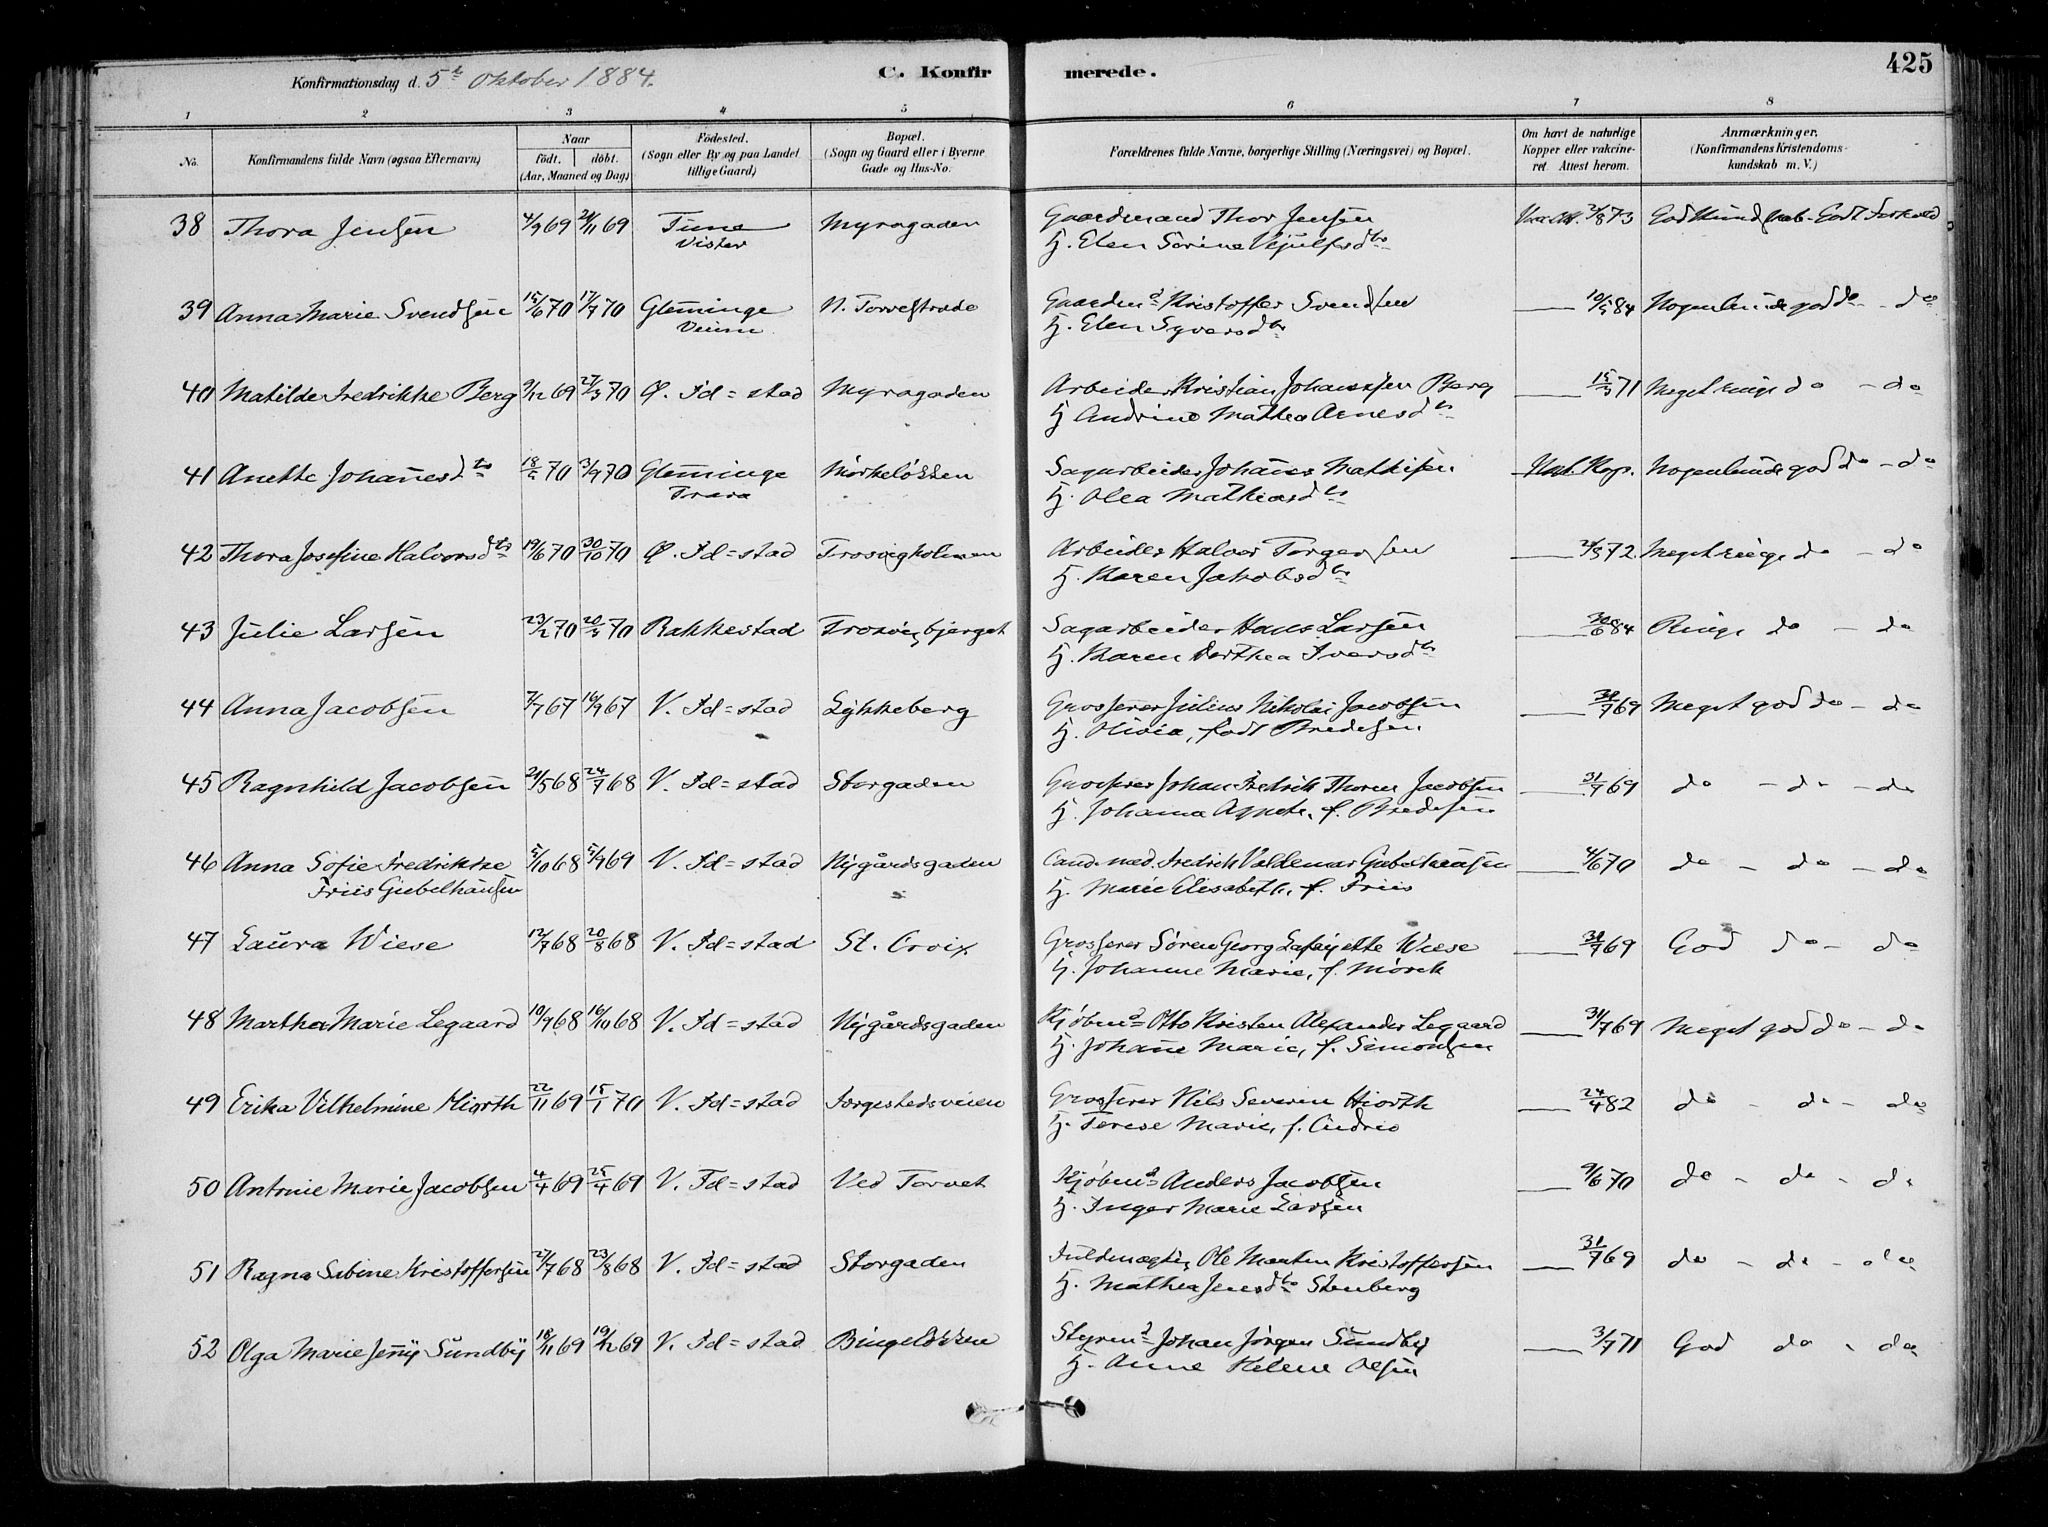 425
Konfirmationsdag d. 5te Oktober 1884.
C. Konfirmerede.
1 2 3 4 5 6 7 8
No. Konfirmandens fulde Navn (ogsaa Efternavn) Naar født. døbt. (Aar, Maaned og Dag) Fødested. (Sogn eller By og paa Landet tillige Gaard) Bopæl. (Sogn og Gaard eller i Byerne Gade og Hus-No. Forældrenes fulde Navne, borgerlige Stilling (Næringsvei) og Bopæl. Om havt de naturlige Kopper eller vakcineret. Attest herom. Anmærkninger. (Konfirmandens Kristendomskundskab m. V.)
38 Thora Jensen 4/9 69 21/11 69 Tune Myragaden Gaardmand Thor Jensen Vac. Att. 2/8 73 God Kundskab - Godt Forhold
Vister Hj. Elen Sørine
39 Anna Marie Svendsen 15/6 70 17/7 70 Glemminge N. Torvestrøde Gaardmd Kristoffer Svendsen — 10/5 84 Nogenlunde god do - do
Veum Hj. Elen Syversdtr
40 Matilde Fredrikke Berg 9/12 69 27/3 70 Ø. Fd=stad Myragaden Arbeider Kristian Johannesen Berg — 15/3 71 Meget ringe do - do
Hj. Andrine Mathea Arnesdtr
41 Anette Johannesdtr 18/5 70 3/9 70 Glemminge Mørkeløkken Sagarbeider Johannes Mathisen Nat. Kop. Nogenlunde god do - do
Trara Hj. Olea Mathiasdtr
42 Thora Josefine Halvorsdtr 19/6 70 30/10 70 Ø. Fd=stad Trosvigholmen Arbeider Halvor Torgersen — 2/3 72 Meget ringe do - do
Hj. Karen Jakobsdtr
43 Julie Larsen 23/2 70 20/3 70 Rakkestad Trosvigbjerget Sagarbeider Hans Larsen — 30/6 84 Ringe do - do
Hj. Karen Dorthea Iversdtr
44 Anna Jacobsen 7/7 67 16/9 67 V. Fd=stad Lykkeberg Grosserer Julius Nikolai Jacobsen — 31/7 69 Meget god do - do
Hj. Olivia, født Bredesen
45 Ragnhild Jacobsen 21/5 68 24/7 68 V. Fd=stad Storgaden Grosserer Johan Fredrik Thorne Jacobsen — 31/7 69 do - do - do
Hj. Johanna Agnete, f. Bredesen
46 Anna Sofie Fredrikke 5/10 68 5/9 69 V. Fd=stad Nygårdsgaden Cand. med. Fredrik Valdemar Giebelhausen — 4/6 70 do - do - do
Friis Giebelhausen Hj. Marie Elisabeth, f. Friis
47 Laura Wiese 12/7 68 20/8 68 V. Fd=stad St. Croix Grosserer Søren Georg Lafayette Wiese — 31/7 69 God do - do
Hj. Johanne Marie, f. Mørch
48 Martha Marie Legaard 10/9 68 16/10 68 V. Fd=stad Nygårdsgaden Kjøbmd Otto Kristen Alexander Legaard — 31/7 69 Meget god do - do
Hj. Johanne Marie, f. Simonsen
49 Erika Vilhelmine Hiorth 22/11 69 15/1 70 V. Fd=stad Færgestedsveien Grosserer Nils Severin Hiorth — 24/4 82 do - do - do
Hj. Terese Marie, f. Endres
50 Antonie Marie Jacobsen 4/4 69 25/4 69 V. Fd=stad Ved Torvet Kjøbmd Anders Jacobsen — 9/6 70 do - do - do
Hj. Inger Marie Larsen
51 Ragna Sabine Kristoffersen 27/7 68 23/8 68 V. Fd=stad Storgaden Fuldmægtig Ole Martin Kristoffersen — 31/7 69 do - do - do
Hj. Mathea Jensdtr Stenberg
52 Olga Marie Jenny Sundby 18/11 69 19/12 69 V. Fd=stad Bingeløkken Styrmd Johan Jørgen Sundby — 3/7 71 God do - do
Hj. Anne Helene Olsen